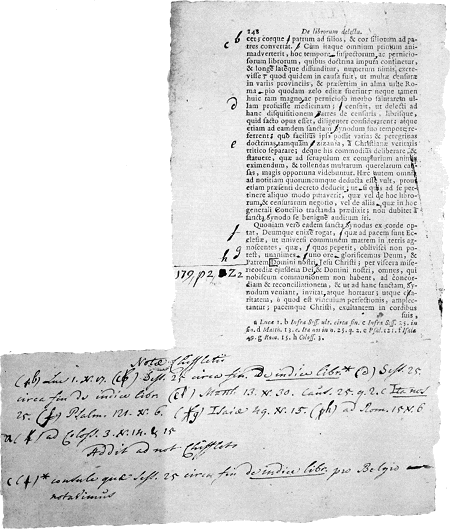 248 De librorum delectu.
b cet; eorque patrum ad filios, & cor filiorum ad pa-
c tres convertat. Cùm itaque omnium primùm ani-
madverterit, hoc tempore suspectorum, ac pernicio-
sorum librorum, quibus doctrina impura continetur,
& longè latèque diffunditur, numerum nimis, excre-
visse quod quidem in causa fuit, ut multæ censuræ
in variis provinciis, & præsertim in alma urbe Roma
pio quodam zelo editæ fuerint; neque tamen
huic tam magno, ac pernicioso morbo salutarem ul-
d lam profuisse medicinam; censuit, ut delecti ad
hanc disquisitionem Patres de censuris, librisque,
quid facto opus esset, diligenter considerarent; atque
etiam ad eamdem sanctam Synodum suo tempore re-
ferrent; quò facilius ipsa possit varias, & peregrinas
e doctrinas, tamquam zizania, à Christianæ veritatis
tritico separare; deque his commodiùs deliberare, &
statuere, quæ ad scrupulum ex complurium animis
eximendum, & tollendas multarum querelarum cau-
sas, magis opportuna videbuntur. Hæc autem omnia
ad notitiam quorumcumque deducta esse vult, prout
etiam præsenti decreto deducit; ut, si quis ad se perti-
nere aliquo modo putaverit, quæ vel de hoc librorum,
& censurarum negotio, vel de aliis, quæ in hoc
generali Concilio tractanda prædixit; non dubitet à
sancta Synodo se benignè auditum iri.
Quoniam verò eadem sancta Synodus ex corde op-
f tat, Deumque enixè rogat, quæ ad pacem sunt Ec-
clesiæ, ut universi communem matrem in terris ag-
g noscentes, quæ, quos peperit, oblivisci non po-
h test, unanimes uno ore glorificemus Deum, &
Patrem Domini nostri Jesu Christi; per viscera mi-
179, p2, Zz sericordiæ ejusdem Dei, & Domini nostri, omnes, qui
nobiscum communionem non habent, ad concor-
diam & reconciliationem, & ut ad hanc sanctam Sy-
nodum veniant, invitat, atque hortatur; utque cha-
ritatem, quod est vinculum perfectionis, amplec-
tantur; pacemque Christi, exultantem in cordibus
suis,
a Luca 1. b Infra Sess. ult. circa fin. c Infra Sess. 25. in
fin. d Matth. 13. e Ita nos in 25. q. 2. e Psal. 121. f Isaiæ
49. g Rom. 15. h Coloss. 3.
Notæ Chiffletii
(b) Luc 1. v. 17. (c) Sess. 25 circa fin De indice libr.* (d) Sess. 25
circa fin de indice libr (e) Matth. 13. v. 30. Caus. 25. q. 2. C Ita nos
25. (f) Psalm. 121. v. 6. (g) Isaiæ 49. v. 15. (h) ad Rom. 15 v. 6
ad Coloss. 3. v. 14. & 15
Addit ad not Chiffletii
(c)* consule quæ Sess. 25 circa fin de indice libr. pro Belgio
notabimus